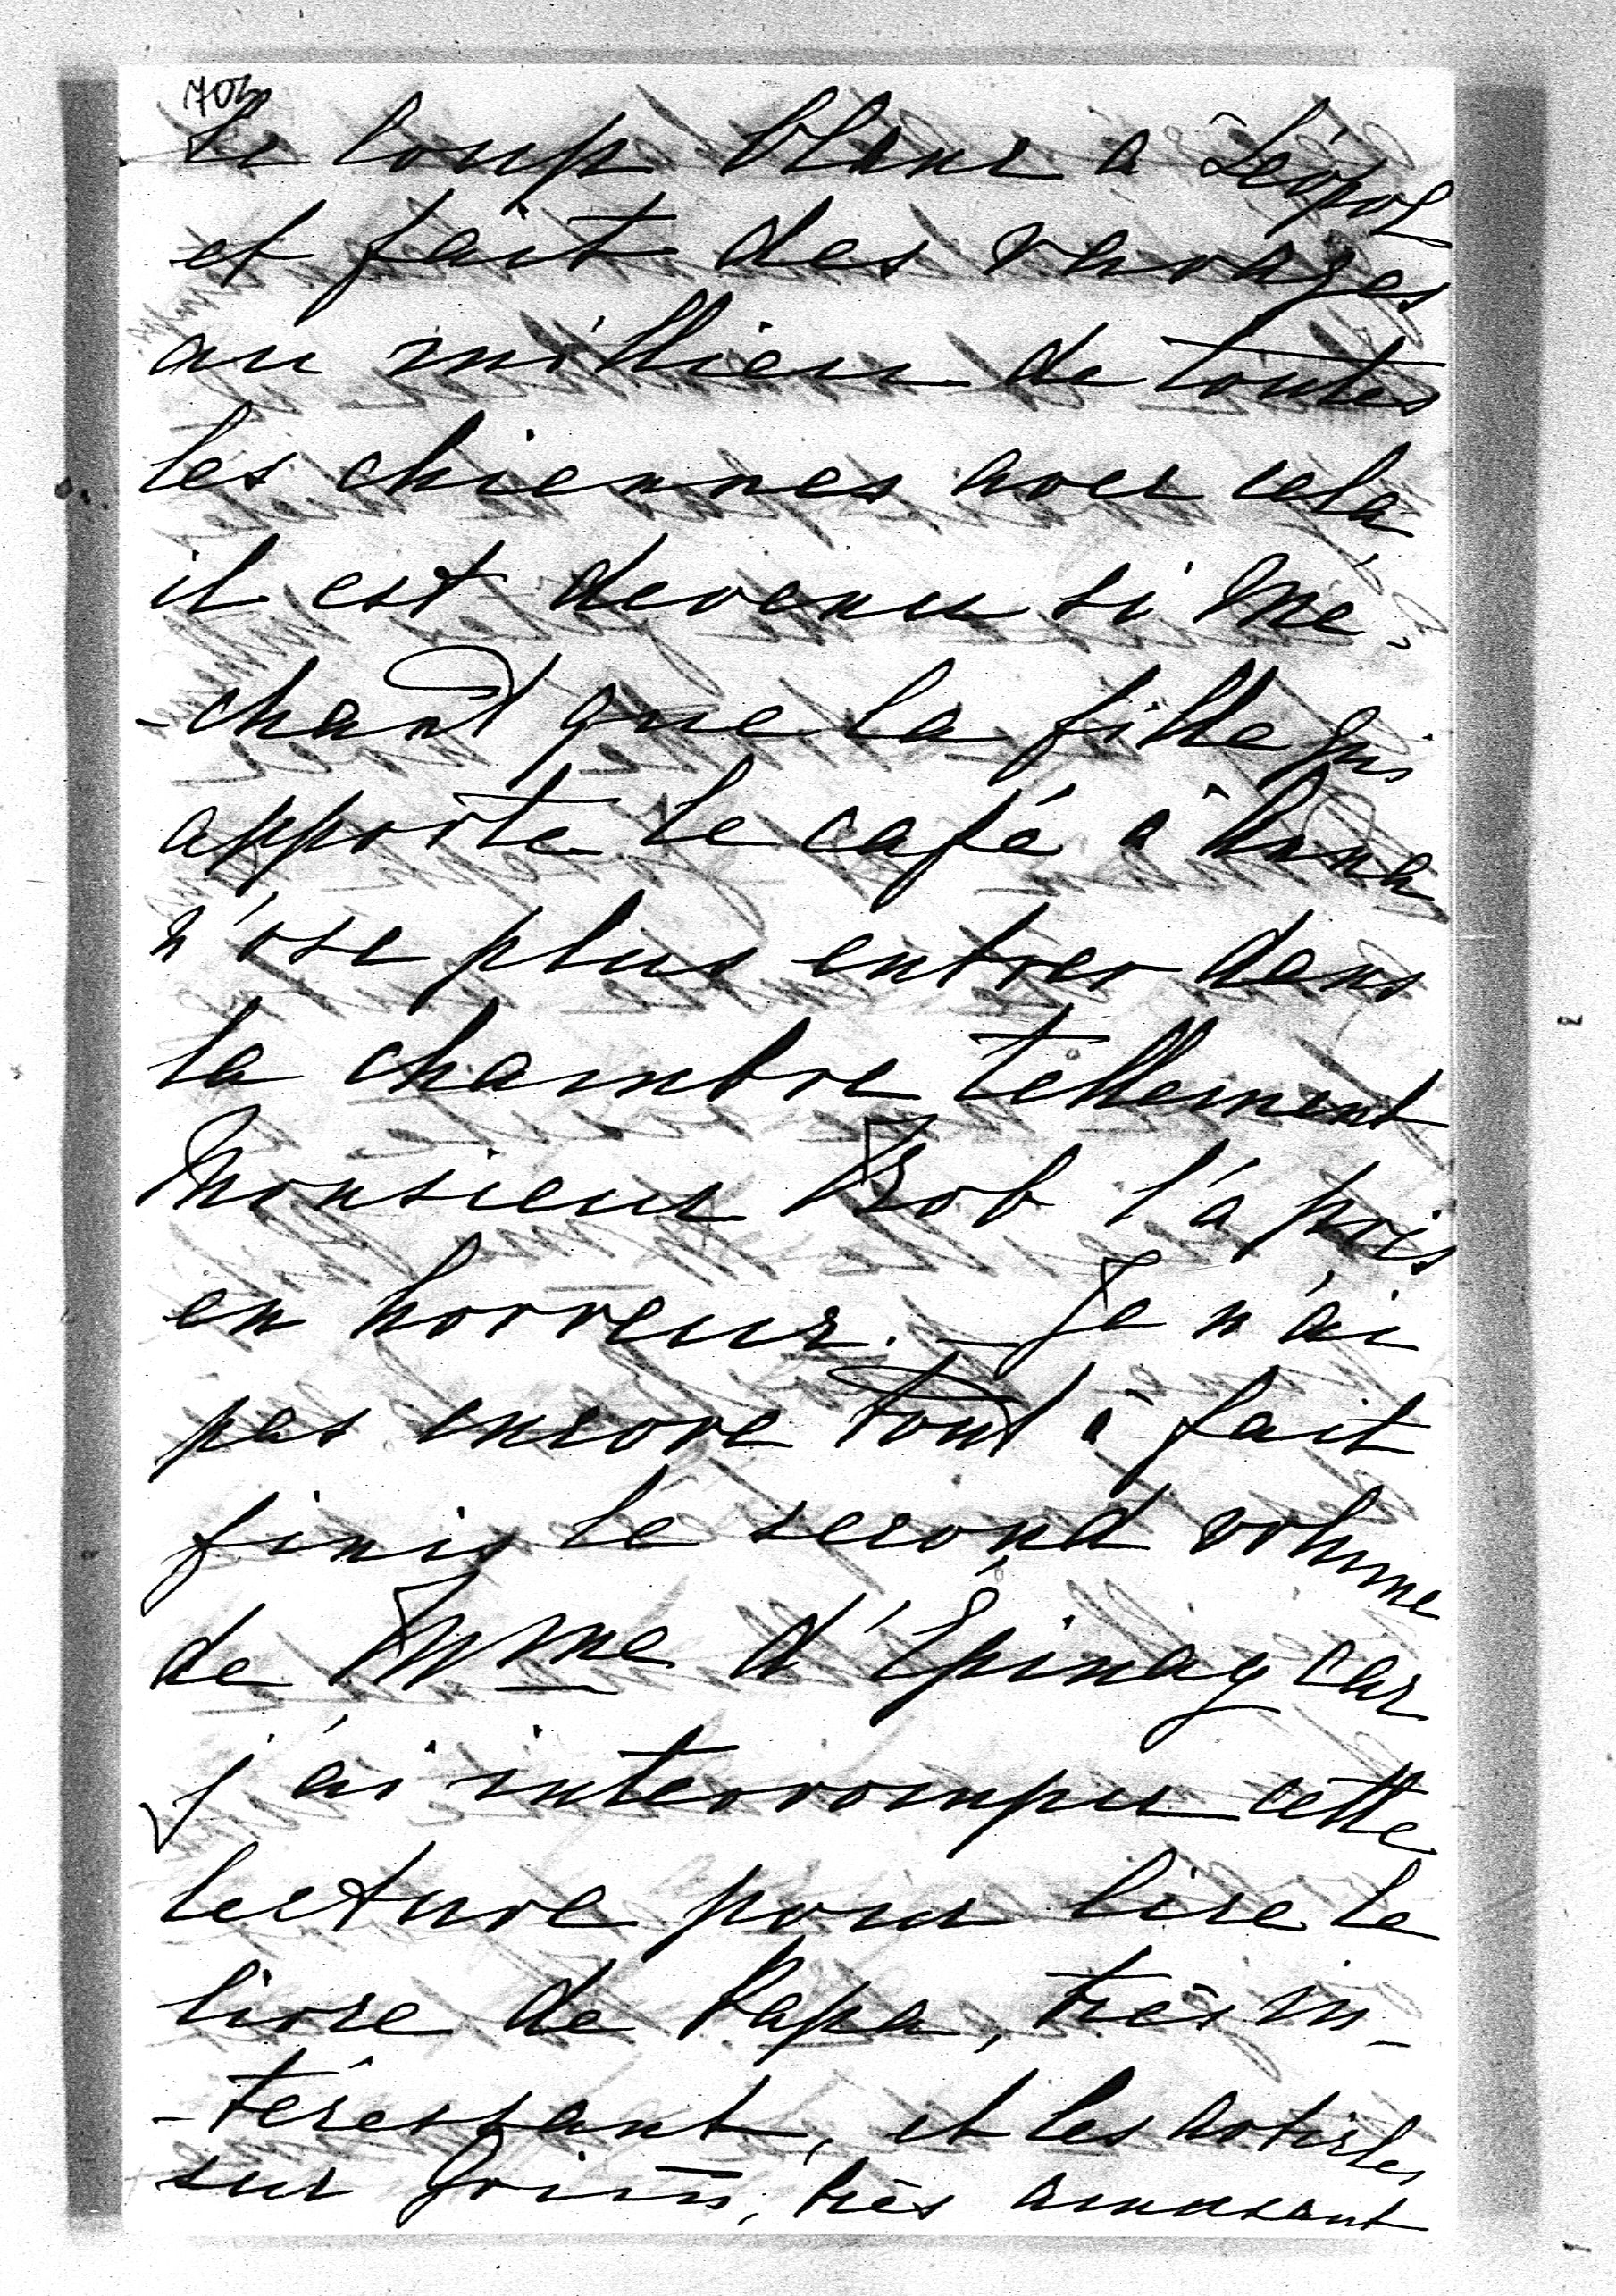 703
Le loup blanc à Léopol
et fait des ravages
au millieu de toutes
les chiennes avec cela
il est devenu si mé-
-chant que la fille qui
apporte le café à Anna
n'ose plus entrer dans
la chambre tellement
Monsieur Bob l'a pris
en horreur. – Je n'ai
pas encore tout à fait
finis le second volume
de Mme d'Epinay car
j'ai interrompu cette
lecture pour lire le
livre de Papa, très in-
-téressant, et les articles
sur Grimm, très amusant